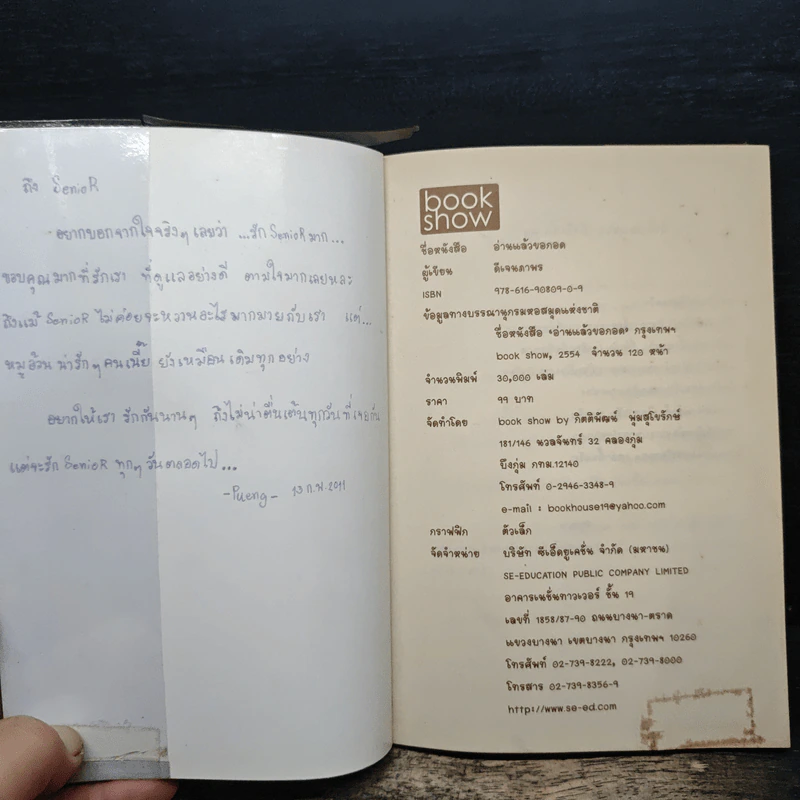 ถึง SenioR
อยากบอกจากใจจริงๆ เลยว่า ...รัก SenioR มาก...
ขอบคุณมากที่รักเรา ที่ดูแลอย่างดี ตามใจมากเลยนะ
ถึงแม้ SenioR ไม่ค่อยจะหวานอะไรมากมายกับเรา แต่...
หมูอ้วน น่ารักๆ คนเนี๊ย ยังเหมือนเดิมทุกอย่าง
อยากให้เรา รักกันนานๆ ถึงไม่น่าตื่นเต้นทุกวันที่เจอกัน
แต่จะรัก SenioR ทุกๆ วันตลอดไป...
-Pueng- 13 ก.พ. 2011
book
show
ชื่อหนังสือ อ่านแล้วขอกอด
ผู้เขียน ดีเจนภาพร
ISBN 978-616-90809-0-9
ข้อมูลทางบรรณานุกรมหอสมุดแห่งชาติ
ชื่อหนังสือ "อ่านแล้วขอกอด" กรุงเทพฯ
book show, 2554 จำนวน 120 หน้า
จำนวนพิมพ์ 30,000 เล่ม
ราคา 99 บาท
จัดทำโดย book show by กิตติพัฒน์ พุ่มสุโขรักษ์
181/146 นวลจันทร์ 32 คลองกุ่ม
บึงกุ่ม กทม.12140
โทรศัพท์ 0-2946-3348-9
e-mail : bookhouse19@yahoo.com
กราฟฟิก ตัวเล็ก
จัดจำหน่าย บริษัท ซีเอ็ดยูเคชั่น จำกัด (มหาชน)
SE-EDUCATION PUBLIC COMPANY LIMITED
อาคารเนชั่นทาวเวอร์ ชั้น 19
เลขที่ 1858/87-90 ถนนบางนา-ตราด
แขวงบางนา เขตบางนา กรุงเทพฯ 10260
โทรศัพท์ 02-739-8222, 02-739-8000
โทรสาร 02-739-8356-9
http://www.se-ed.com